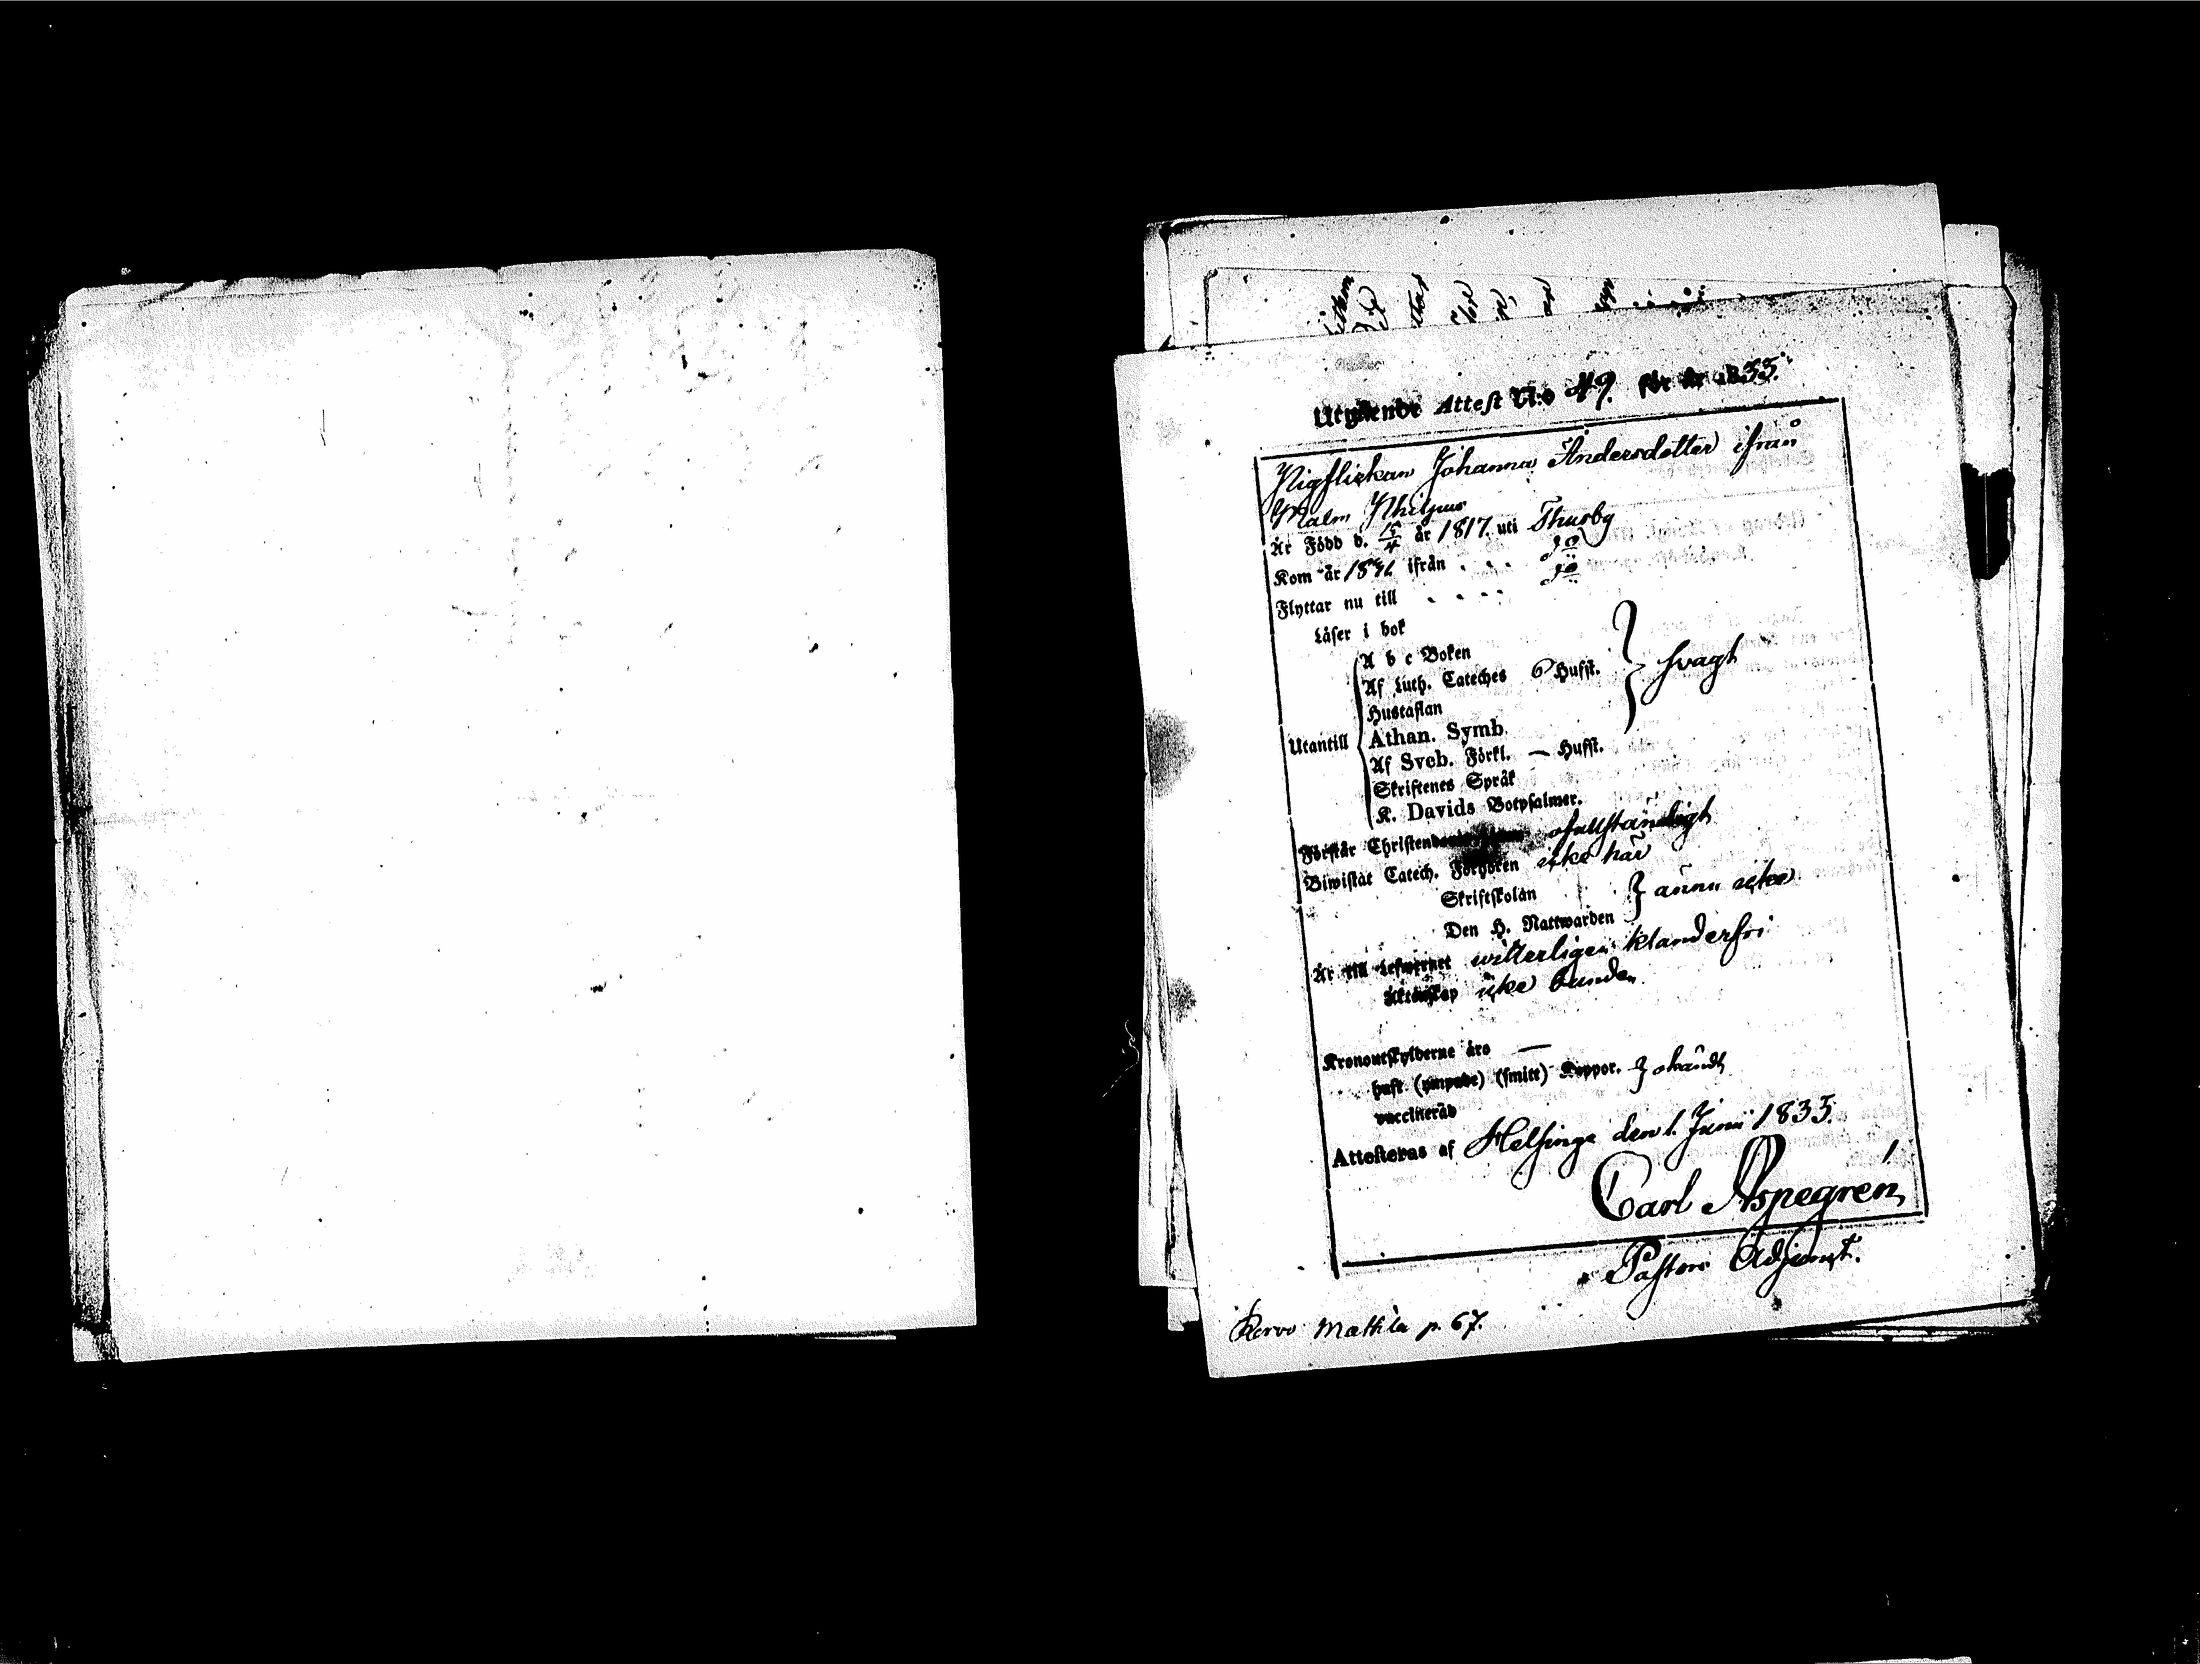 Utgående Attest N:o 49. för år 1835.
Pigflickan Johanna Andersdotter ifrån
Malm Philpus
Är Född d. 15/4 år 1817. uti Thusby
Kom år ifrån . . . do
Flyttar nu till . . . . do
Läser i bok
A b c Boken
Af Luth. Cateches 6 Hufst. } svagt
Hustaflan
Utantill Athan. Symb.
Af Sveb. Förkl. — Hufst.
Skriftenes Språk
K. Davids Botpsalmer.
Förstår Christendoms ofullständigt
Biwistat Catech. Förhören icke här
Skriftskolan
Den H. Nattwarden } ännu icke
Är till Lefwernet witterligen klanderfri
Äktenskap icke bunden
Kronoutskylderne års —
haft (ympade) (smitt) Koppor. } okändt
vaccinerad
Attesteras af Helsinge den 1. Junii 1835.
Carl Aspegren
Pastors Adjunct.
Kervo Mattila p. 67.